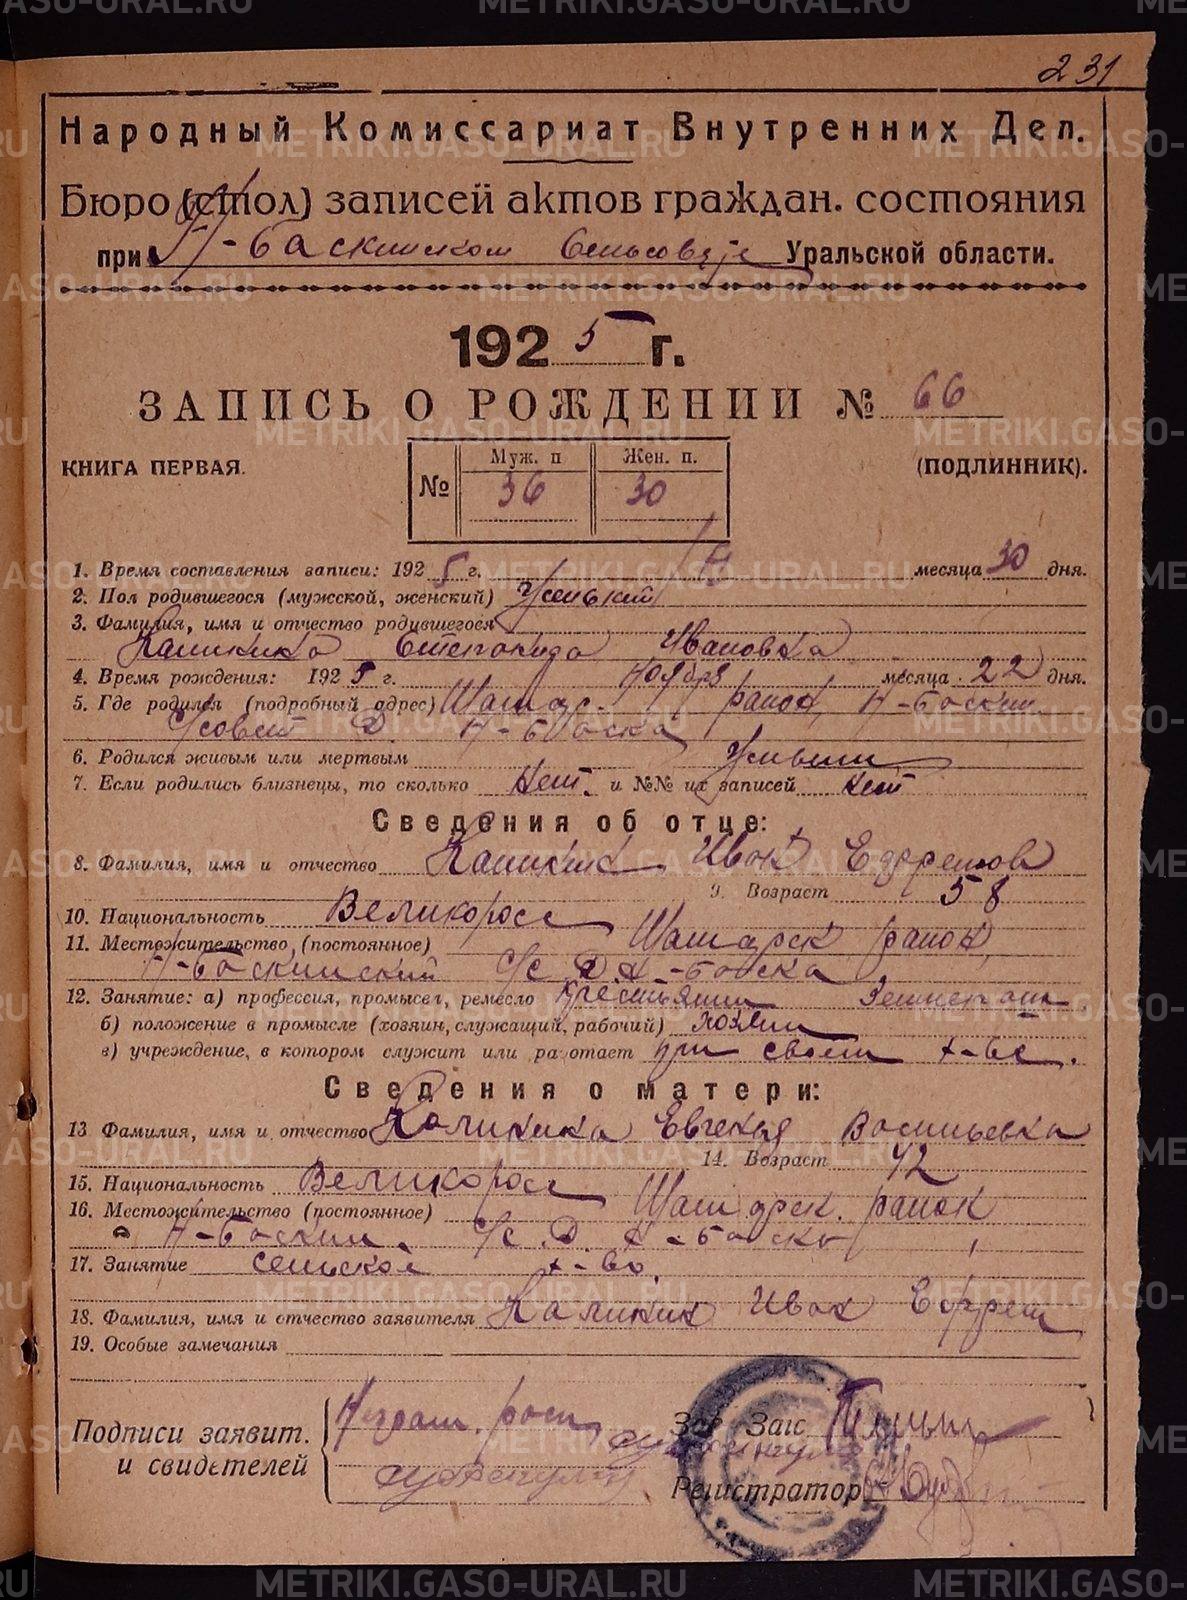 231
Народный Комиссариат Внутренних Дел.
Бюро (стол) записей актов граждан. состояния
при Н-Баскинском Сельсовете Уральской области.
1925 г.
ЗАПИСЬ О РОЖДЕНИИ № 66
КНИГА ПЕРВАЯ.
(ПОДЛИННИК).
№ Муж. п Жен. п.
36 30
1. Время составления записи: 1925 г. месяца 30 дня.
2. Пол родившегося (мужской, женский) Женский
3. Фамилия, имя и отчество родившегося
Ивановна
4. Время рождения: 1925 г. Ноября месяца 22 дня.
5. Где родился (подробный адрес) район, Н-Баскин.
С/совет Д. Н-Баска
6. Родился живым или мертвым Живым
7. Если родились близнецы, то сколько нет. и №№ их записей нет
Сведения об отце:
8. Фамилия, имя и отчество Иван Ефремов
9. Возраст 58
10. Национальность Великоросс
11. Местожительство (постоянное) район,
Н-Баскинский С/с Д Н-Баска
12. Занятие: а) профессия, промысел, ремесло крестьянин
б) положение в промысле (хозяин, служащий, рабочий) хозяин
в) учреждение, в котором служит или работает при своем х-ве.
Сведения о матери:
13 Фамилия, имя и отчество Евгенья Васильевна
14. Возраст 42
15. Национальность Великоросс
16. Местожительство (постоянное) район
Н-Баскин. С/с. Д. Н-Баска
17. Занятие сельское х-во.
18. Фамилия, имя и отчество заявителя Иван Ефрем
19. Особые замечания
Подписи заявит.
и свидетелей
Зав. Загс
Регистратор
METRIKI.GASO-URAL.RU